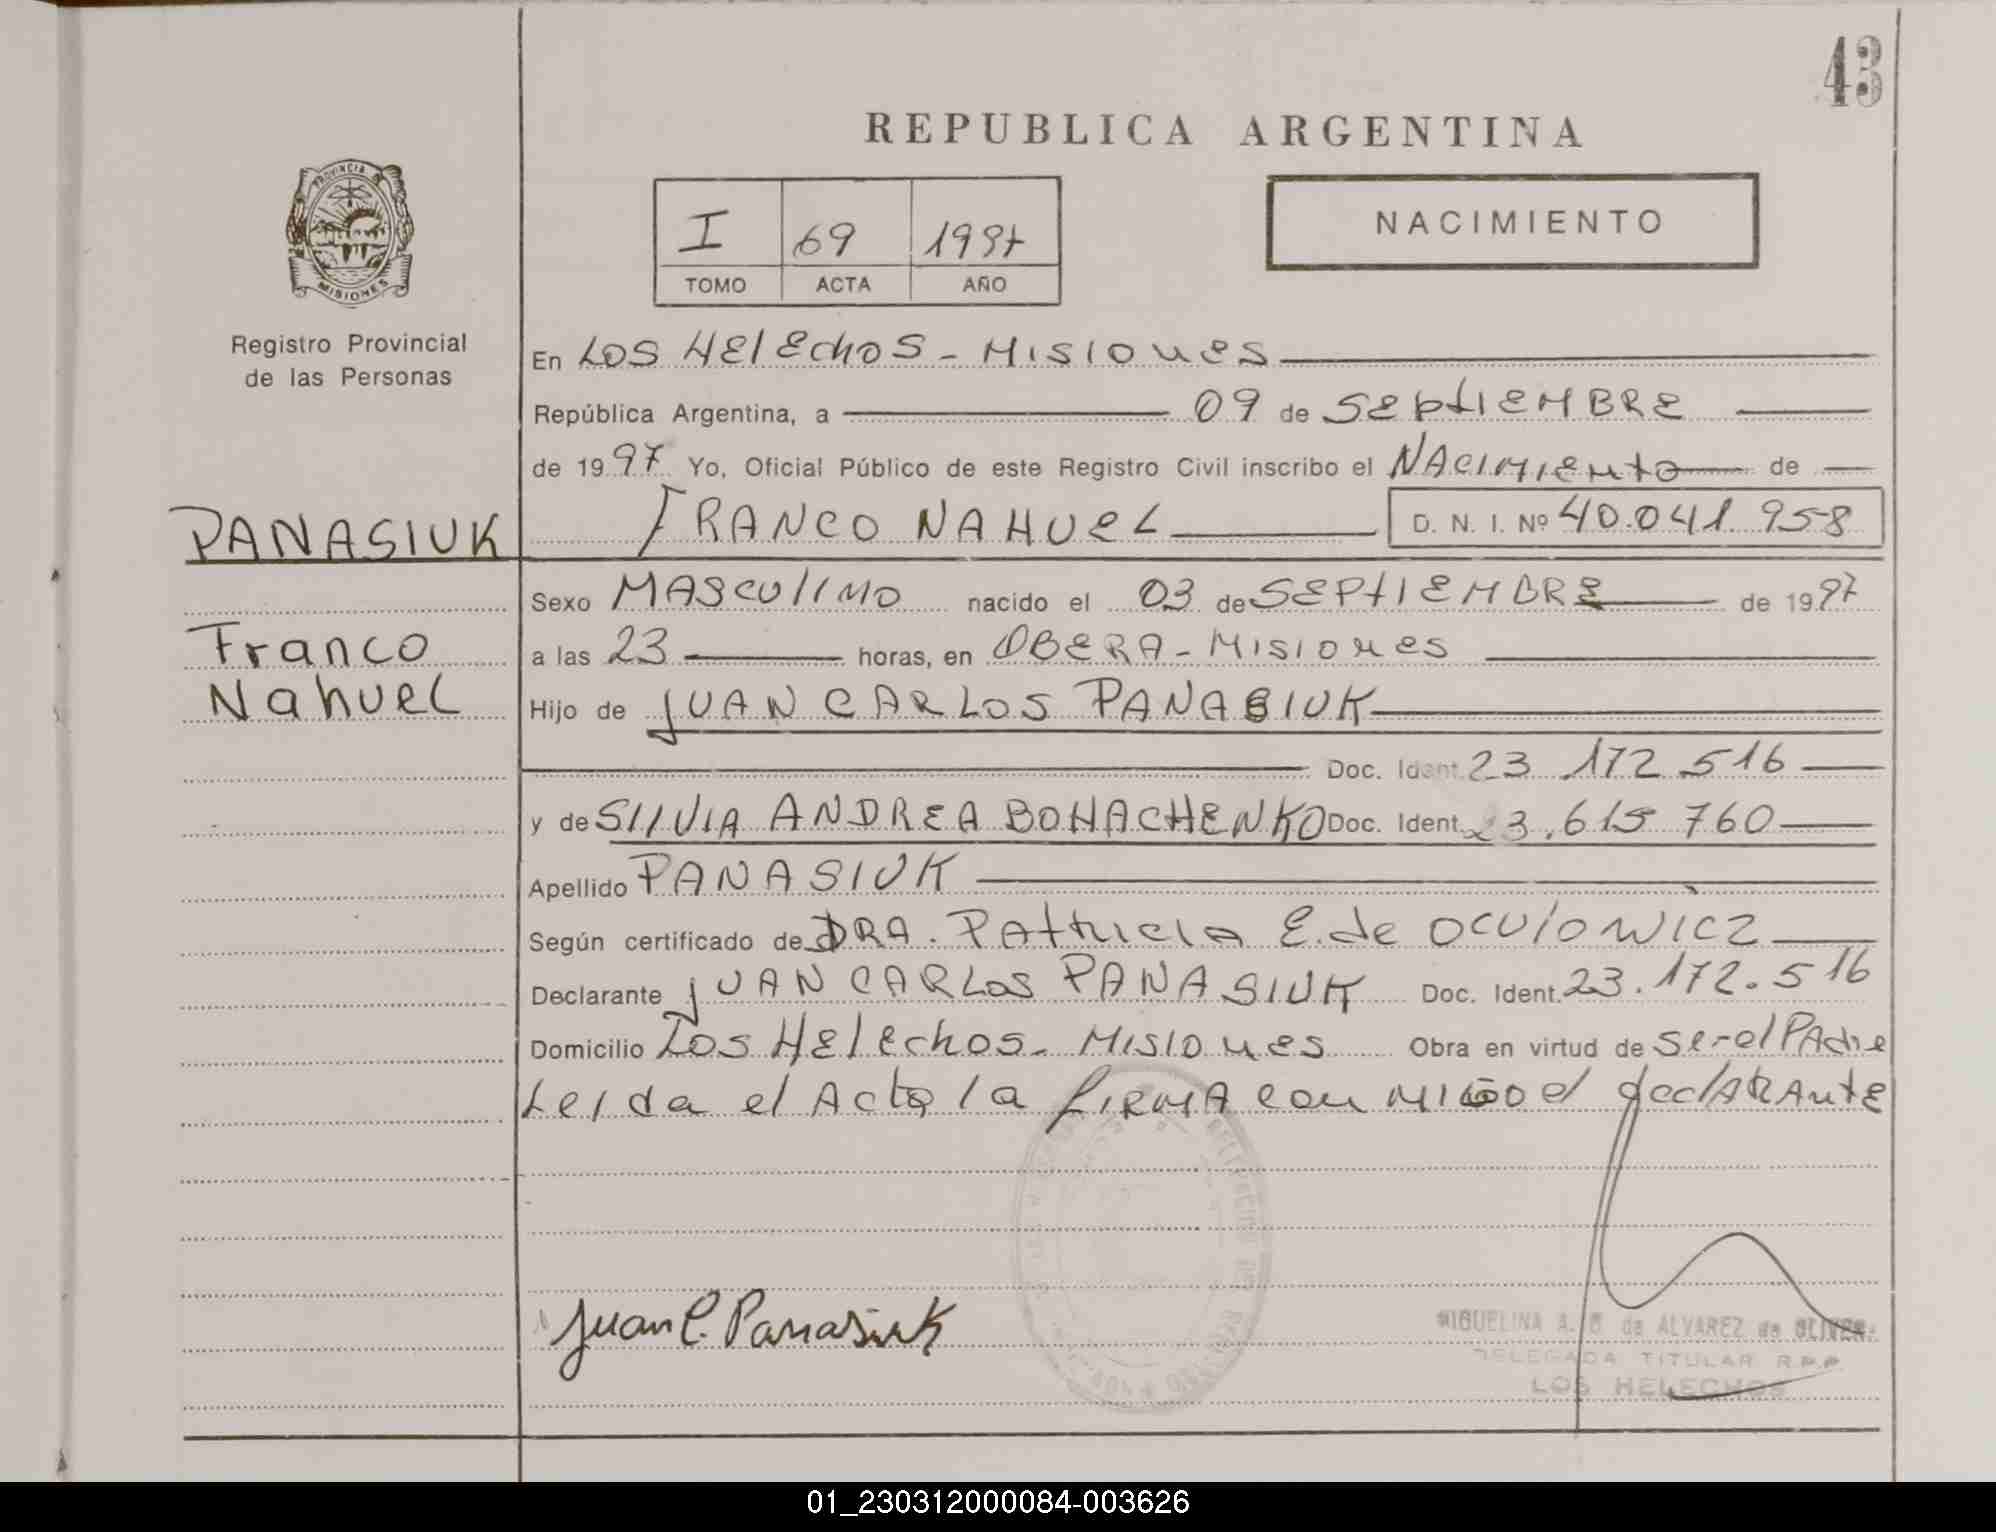 43
REPUBLICA ARGENTINA
PROVINCIA DE
MISIONES
I 69 1997
TOMO ACTA AÑO
NACIMIENTO
Registro Provincial
de las Personas
En LOS HElEchOS - MISIONES
República Argentina, a 09 de SEptIEMBRE
de 1997 Yo, Oficial Público de este Registro Civil inscribo el NACIMIENto de
PANASIUK
FRANCO NAHUEL D. N. I. Nº 40.041.958
Franco
Nahuel
Sexo MASCUlINO nacido el 03 de SEPtIEMBRE de 1997
a las 23 horas, en OBERA - MISIONES
Hijo de JUAN CARLOS PANASIUK
Doc. Ident. 23.172.516
y de SIlVIA ANDREA BOHACHENKO Doc. Ident. 23.615.760
Apellido PANASIUK
Según certificado de DRA. PAtRICIA E. de OCUlOWICZ
Declarante JUAN CARLOS PANASIUK Doc. Ident. 23.172.516
Domicilio LOS HElEchOS - MISIONES Obra en virtud de SER el PAdRE
LeIda el Acta la fIRMA con MIGO el declARANtE
Juan C. Panasiuk
MIGUELINA A. de ALVAREZ de OLIVERA
DELEGADA TITULAR R.P.P.
LOS HELECHOS
01_230312000084-003626